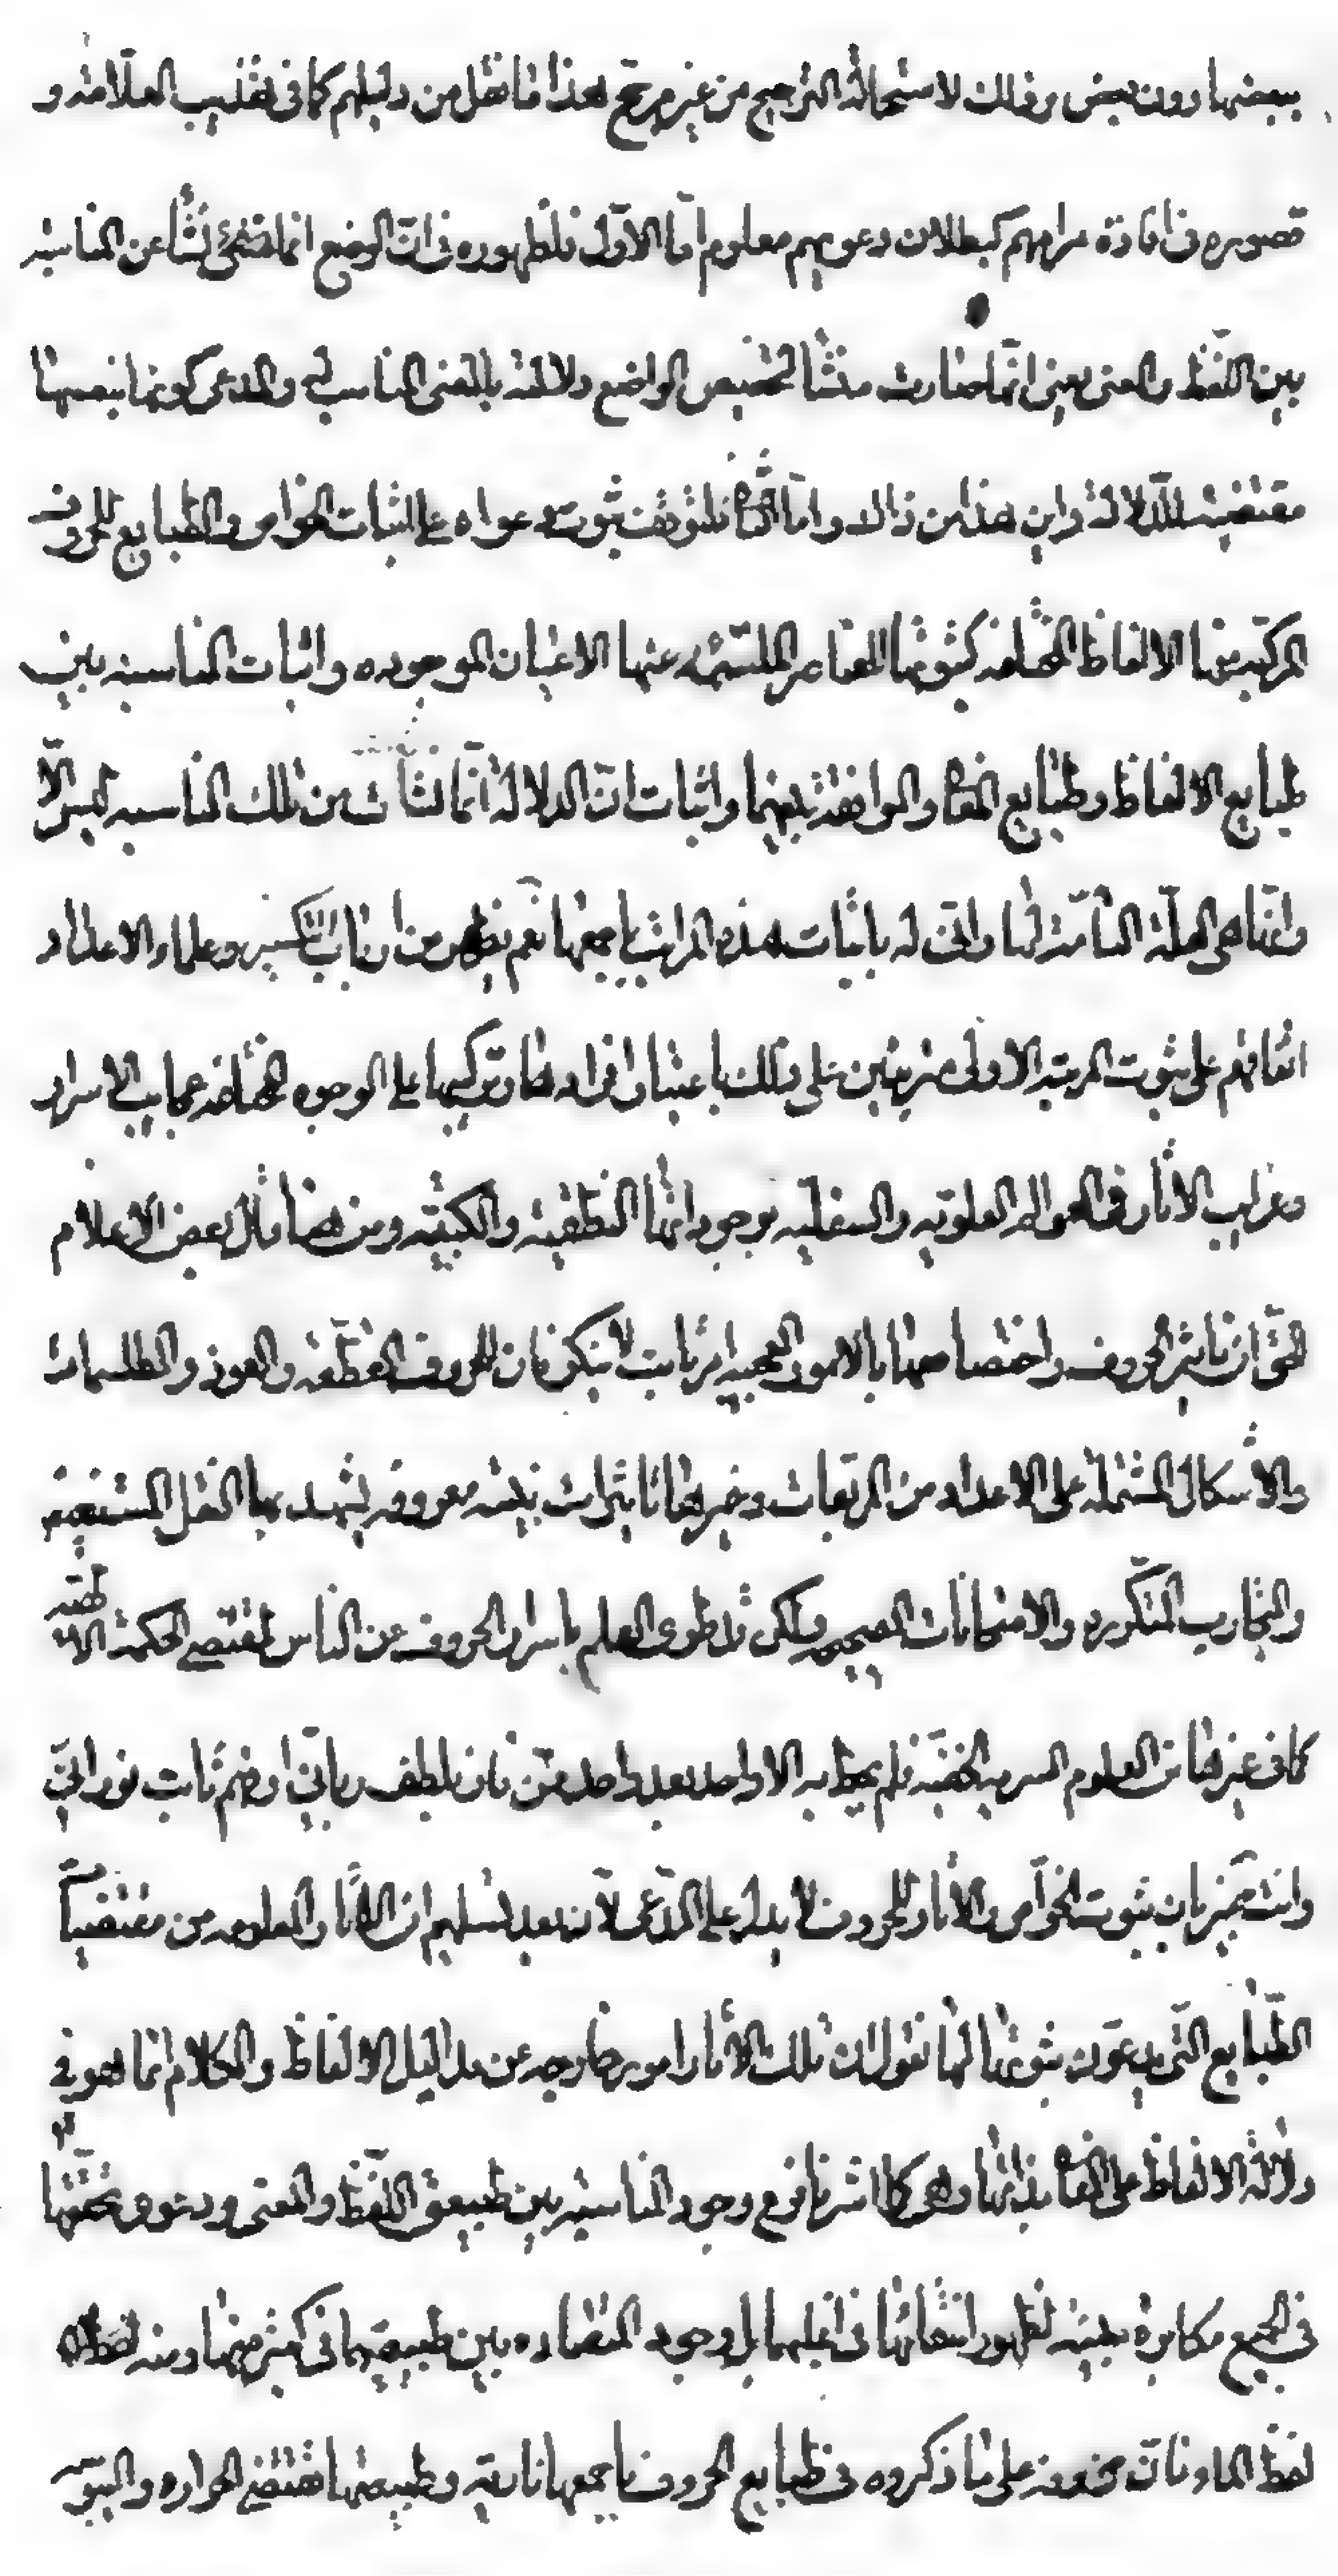 ببعضها دون بعض وذلك لاستحالة الترجيح من غير مرجح هذا ما نقل من دليلهم كما في تهذيب العلامة و
قصوره في افادة مرامهم كبطلان دعويهم معلوم اما الاول فلظهوره في ان الوضع انما نشأ عن المناسبة
بين اللفظ والمعنى يعني انها صارت منشأ لتخصيص الواضع دلالته بالمعنى المناسب له والمدعى كونها بنفسها
مقتضية للدلالة واين هذا من ذاك واما الثاني فلتوقف ثبوت دعواه على اثبات الخواص والطبايع للحروف
المركبة منها الالفاظ المختلفة كثبوتها للعناصر الملتئمة عنها الاعيان الموجوده واثبات المناسبة بين
طبايع الالفاظ وطبايع المعاني والموافقة بينهما واثبات ان الدلالة انما نشأت من تلك المناسبة ليس الا
وانها هي العلة التامة لها وانى له باثبات هذه المراتب باجمعها نعم يظهر من ارباب التكسير وعلماء الاعداد
اتفاقهم على ثبوت المرتبة الاولى مرتبين على ذلك باعتبار افرادها وتركيبها على الوجوه المختلفة عجايب الاسرار
وغرايب الاثار في العوالم العلوية والسفلية بوجوداتها اللفظية والكتبية ومن هنا قال بعض الاعلام
الحق ان تاثير الحروف واختصاصها بالامور العجيبة امر ثابت لا ينكر فان للحروف المقطعة والعوذ والطلسمات
والاشكال المشتملة على الاعداد من المربعات وغيرها تاثيرات بينة معروفة يشهد بها النقل المستفيض
والتجارب المتكررة والامتحانات الصحيحة ولكن قد طوى العلم باسرار الحروف عن الناس لمقتضى الحكمة الالهية
كما في غيرها من العلوم السرية الخفية فلم يحظ به الا واحد بعد واحد ممن فاز بلطف رباني او فهم ثابت نوراني
وانت خبير بان ثبوت الخواص والاثار للحروف لا يدل على المدعى لان بعد تسليم ان الاثار المعلومة من مقتضيات
الطبايع التي يدعون ثبوتها لها نقول ان تلك الاثار امور خارجة عن مداليل الالفاظ والكلام انما هو في
دلالة الالفاظ على المعاني بذاتها وهي كما اشرنا فرع وجود المناسبة بين طبيعتي اللفظ والمعنى ودعوى تحققها
في الجميع مكابرة بينة لظهور انتفائها في اغلبها بل وجود المتضادة بين طبيعتيهما في كثير منها ومنه
لفظ الماء فان حروفه على ما ذكروه في طبايع الحروف باجمعها نارية وطبيعتها تقتضي الحرارة واليبوسة